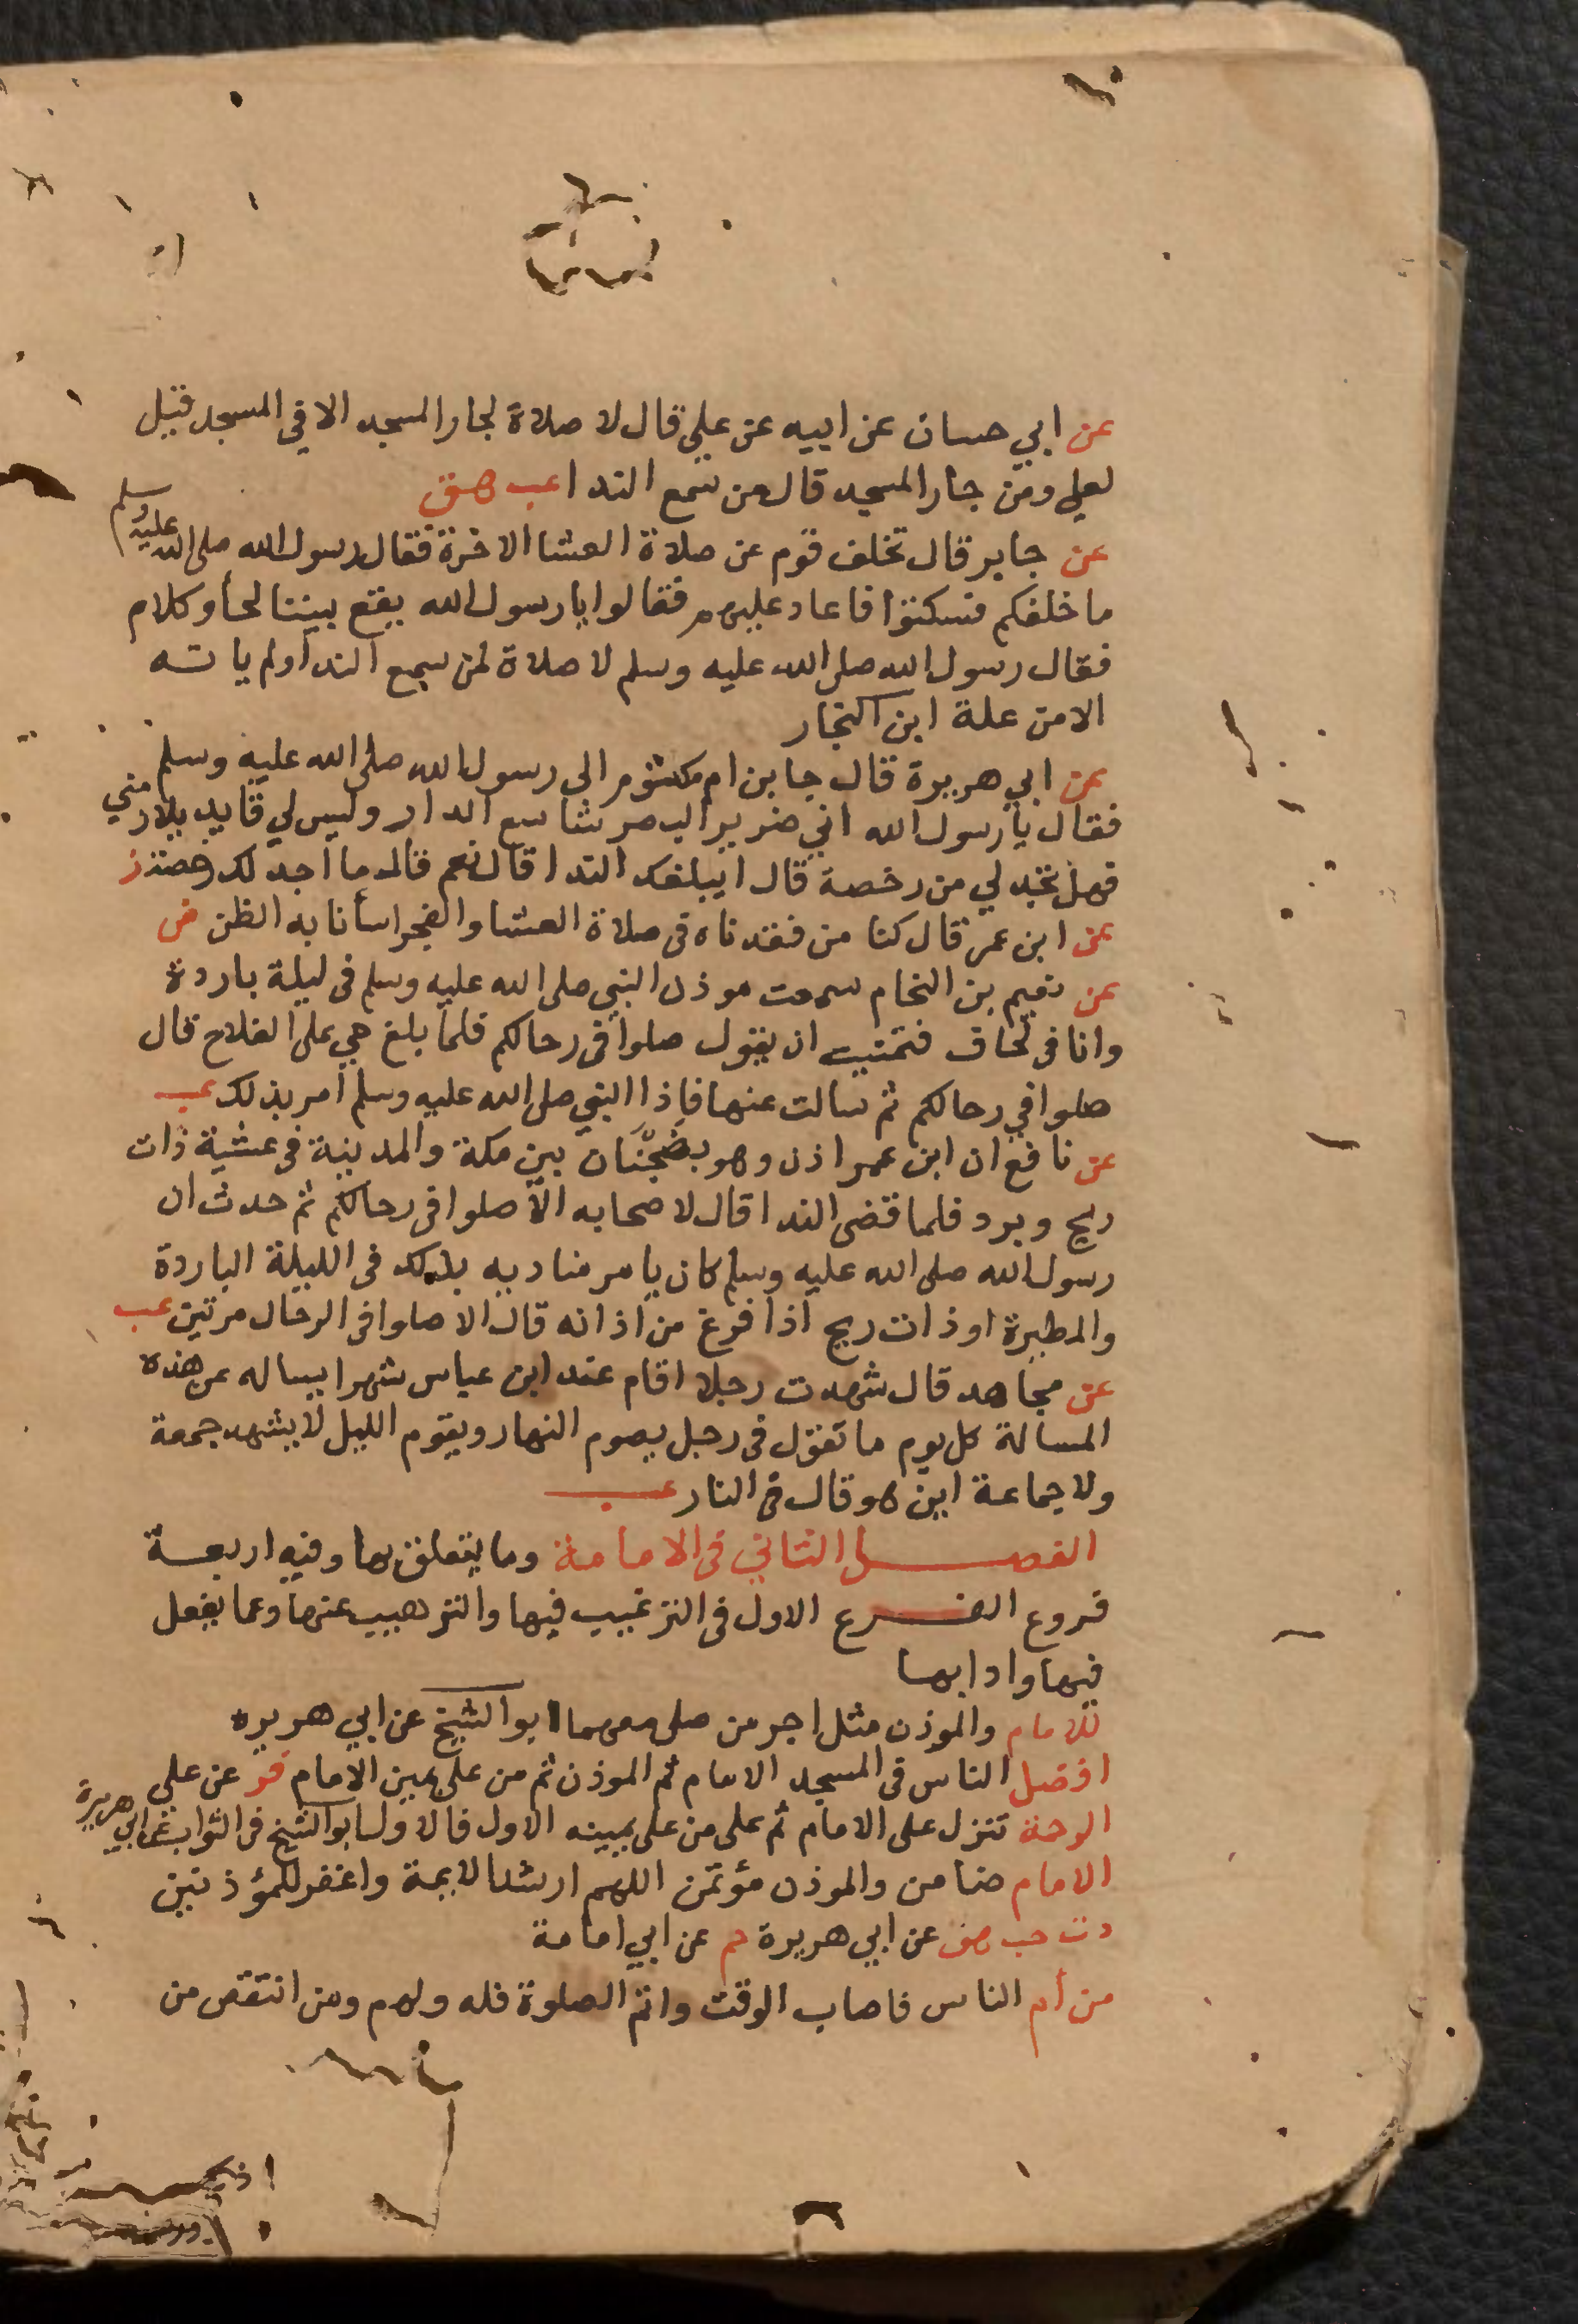 عن ابي حسان عن ابيه عن علي قال لا صلاة لجار المسجد الا في المسجد قيل
لعلي ومن جار المسجد قال من سمع الندا عب هق
عن جابر قال تخلف قوم عن صلاة العشا الاخرة فقال رسول الله صلى الله عليه وسلم
ما خلفكم فسكتوا فاعاد عليهم فقالوا يا رسول الله يقع بيننا لحأ وكلام
فقال رسول الله صلى الله عليه وسلم لا صلاة لمن سمع الندا ولم ياته
الا من علة ابن النجار
عن ابي هريرة قال جا بن ام مكتوم الى رسول الله صلى الله عليه وسلم
فقال يا رسول الله اني ضرير البصر شاسع الدار وليس لي قايد يلازمني
فهل تجد لي من رخصة قال ايبلغك الندا قال نعم قال ما اجد لك رخصة ز
عن ابن عمر قال كنا من فقدناه في صلاة العشا والفجر اسأنا به الظن ض
عن نعيم بن النحام سمعت موذن النبي صلى الله عليه وسلم في ليلة باردة
وانا في لحاف فتمنيت ان يقول صلوا في رحالكم فلما بلغ حي على الفلاح قال
صلوا في رحالكم ثم سالت عنها فاذا النبي صلى الله عليه وسلم امر بذلك عب
عن نافع ان ابن عمر اذن وهو بضجنان بين مكة والمدينة في عشية ذات
ريح وبرد فلما قضى الندا قال لاصحابه الا صلوا في رحالكم ثم حدث ان
رسول الله صلى الله عليه وسلم كان يامر مناديه بذلك في الليلة الباردة
والمطيرة او ذات ريح اذا فرغ من اذانه قال الا صلوا في الرحال مرتين عب
عن مجاهد قال شهدت رجلا اقام عند ابن عباس شهرا يساله عن هذه
المسالة كل يوم ما تقول في رجل يصوم النهار ويقوم الليل لا يشهد جمعة
ولا جماعة اين هو قال في النار عب
الفصل الثاني في الامامة وما يتعلق بها وفيه اربعة
فروع الفرع الاول في الترغيب فيها والترهيب عنها وعما يفعل
فيها وادابها
للامام والموذن مثل اجر من صلى معهما ابو الشيخ عن ابي هريره
افضل الناس في المسجد الامام ثم الموذن ثم من على يمين الامام فر عن علي
الرحمة تنزل على الامام ثم على من على يمينه الاول فالاول ابو الشيخ في الثواب عن ابي هريرة
الامام ضامن والموذن مؤتمن اللهم ارشد الايمة واغفر للمؤذنين
د ت حب هق عن ابي هريرة حم عن ابي امامة
من أم الناس فاصاب الوقت واتم الصلوة فله ولهم ومن انتقص من